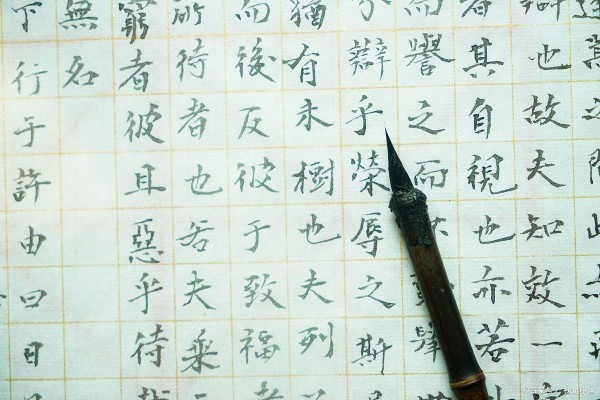 之間此
辯也故夫知效一
者其自視也亦若
而譽之而
分辯乎榮辱之斯
猶有未樹也夫列
而後反彼于致福
所待者也若夫乘
窮者彼且惡乎待
無名
下行于許由曰日